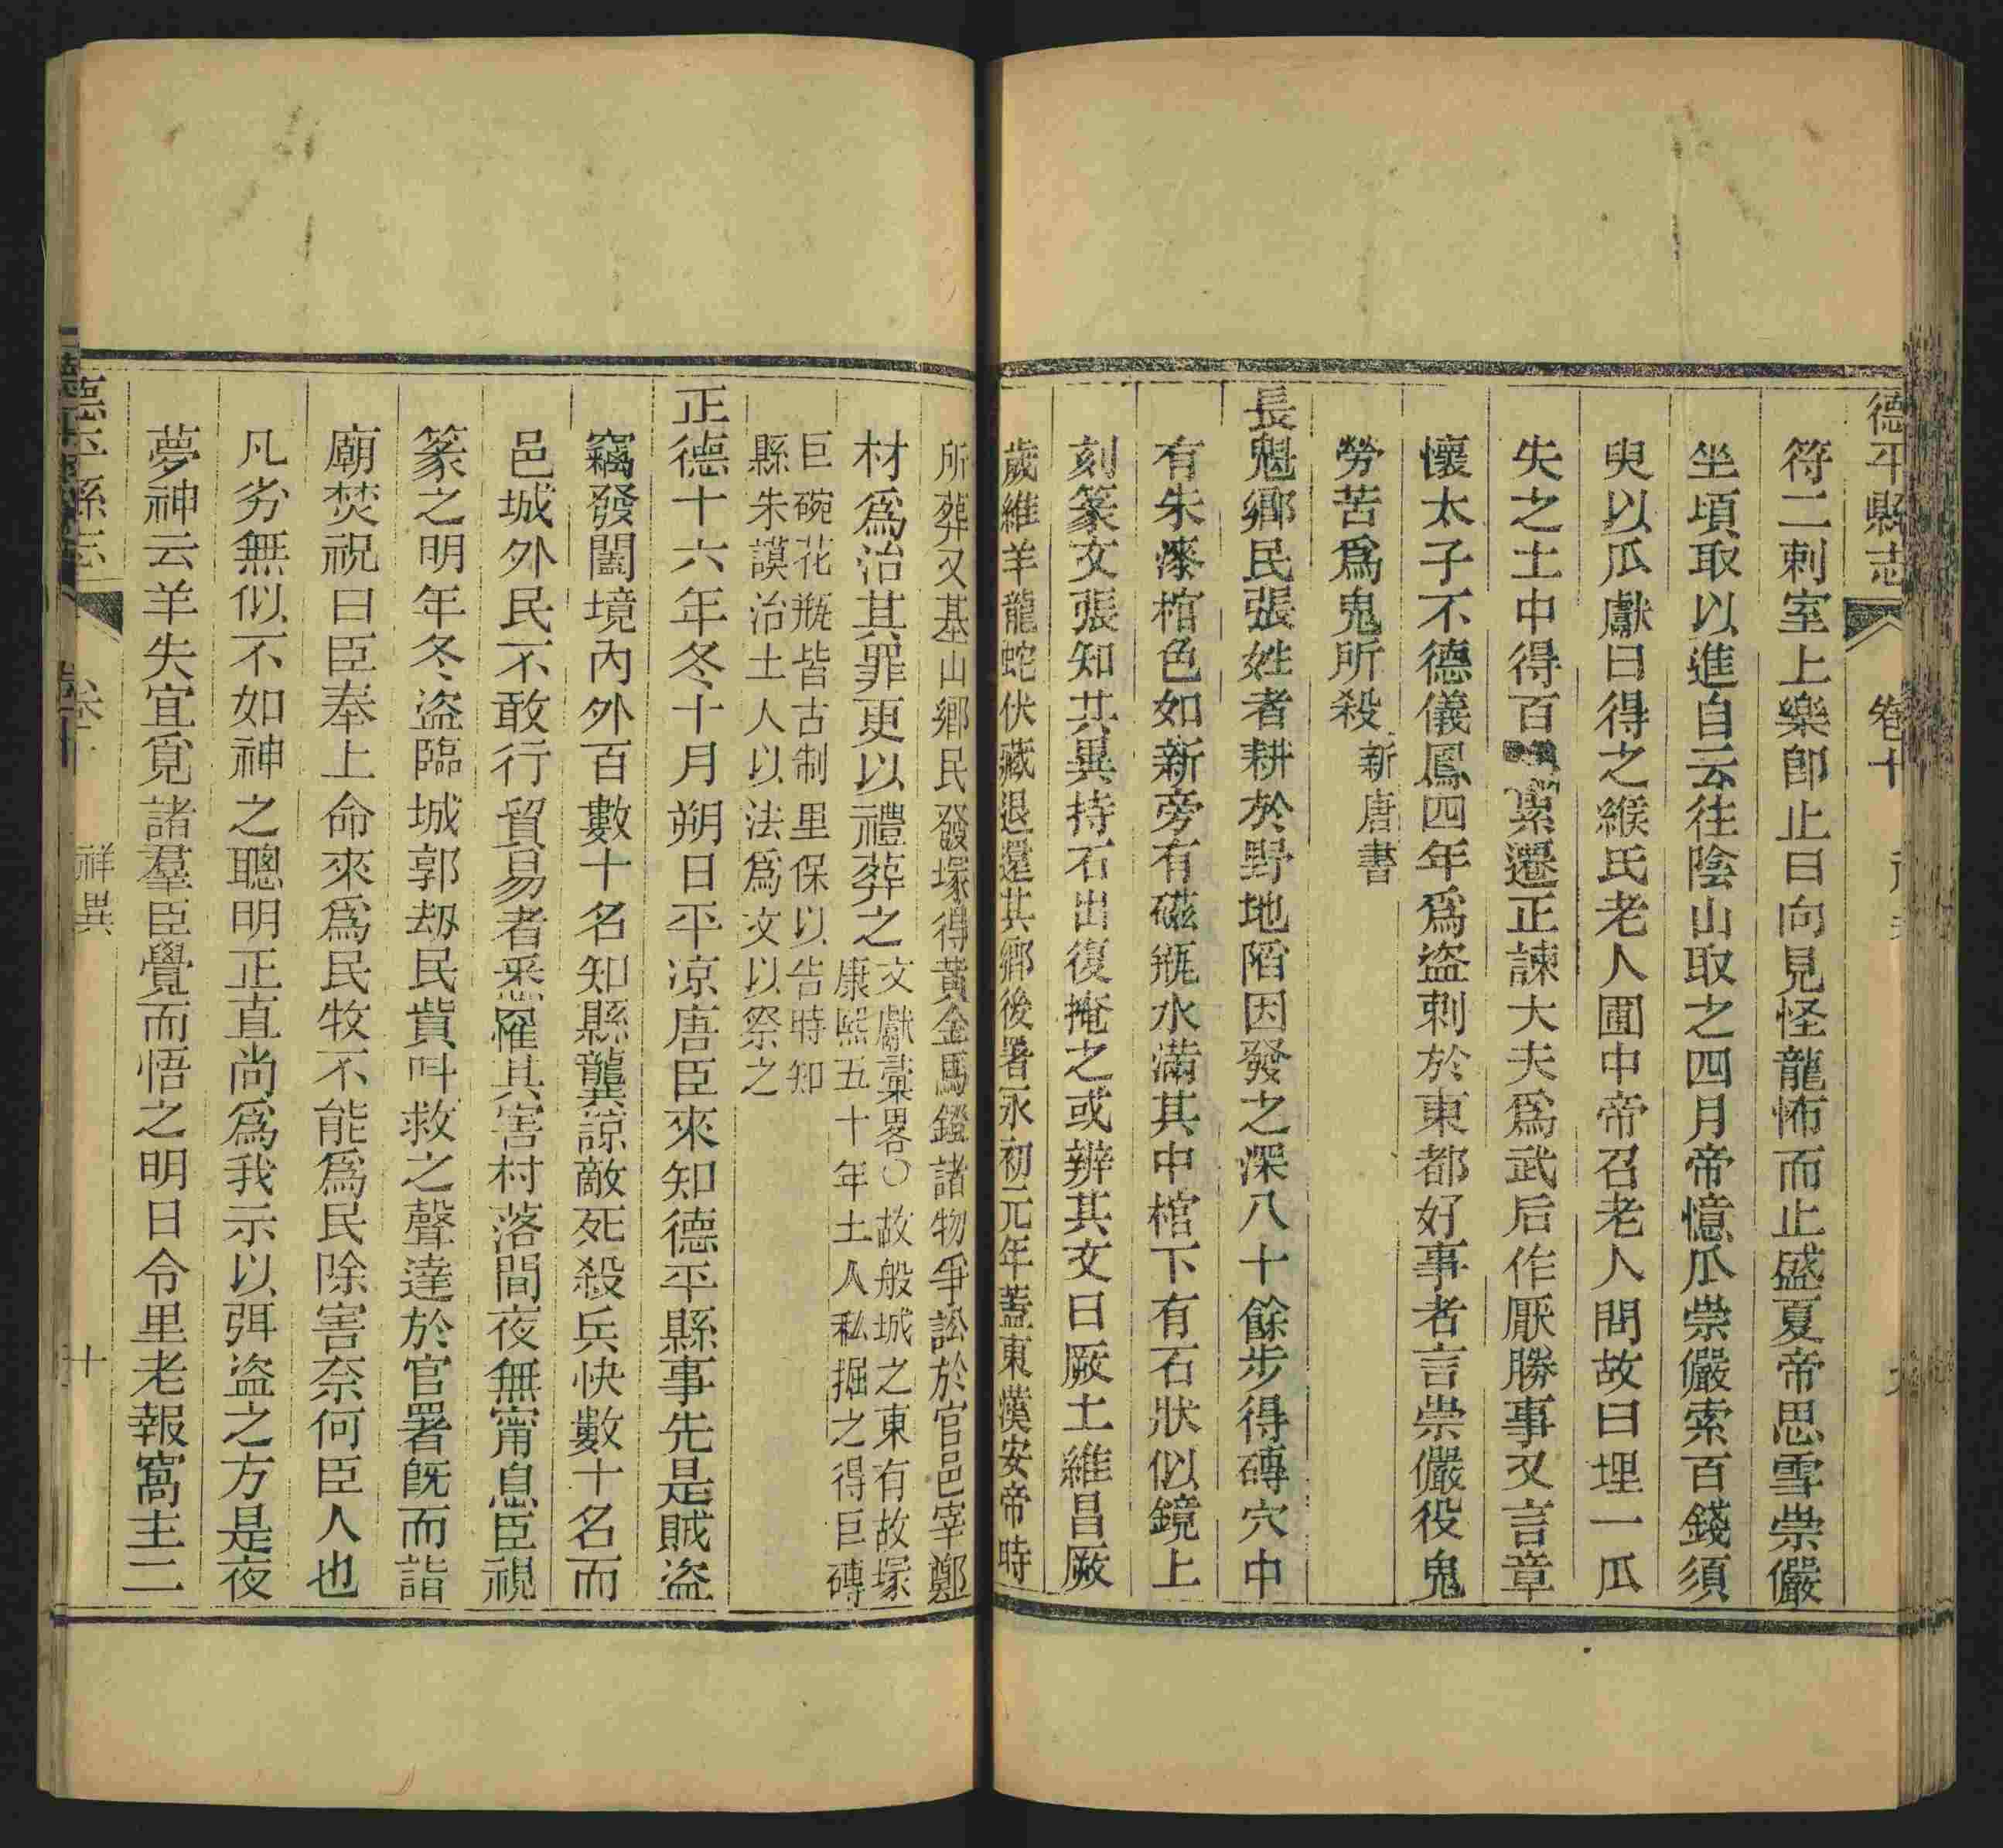 德平縣志 卷十
符二刺室上樂卽止曰向見怪龍怖而止盛夏帝思雪崇儼
坐頃取以進自云往陰山取之四月帝憶瓜崇儼索百錢須
臾以瓜獻曰得之緱氏老人圃中帝召老人問故曰埋一瓜
失之土中得百 累遷正諫大夫爲武后作厭勝事又言章
懷太子不德儀鳳四年爲盜刺於東都好事者言崇儼役鬼
勞苦爲鬼所殺 新唐書
長魁鄉民張姓者耕於野地陷因發之深八十餘步得磚穴中
有朱漆棺色如新旁有磁瓶水滿其中棺下有石狀似鏡上
刻篆文張知其異持石出復掩之或辨其文曰厥土維昌厥
歲維羊龍蛇伏藏退還其鄉後署永初元年蓋東漢安帝時
所葬又基山鄉民發塚得黃金馬鐙諸物爭訟於官邑宰鄭
材爲治其罪更以禮葬之 文獻稾畧○故般城之東有故塚
康熙五十年土人私掘之得巨磚
巨碗花瓶皆古制里保以告時知
縣朱謨治土人以法爲文以祭之
正德十六年冬十月朔日平凉唐臣來知德平縣事先是賊盜
竊發闔境內外百數十名知縣龔諒敵死殺兵快數十名而
邑城外民不敢行貿易者悉罹其害村落間夜無甯息臣視
篆之明年冬盜臨城郭刼民貲叫救之聲達於官署旣而詣
廟焚祝曰臣奉上命來爲民牧不能爲民除害奈何臣人也
凡劣無似不如神之聰明正直尚爲我示以弭盜之方是夜
夢神云羊失宜覓諸羣臣覺而悟之明日令里老報窩主二
德平縣志 卷十 祥異 十